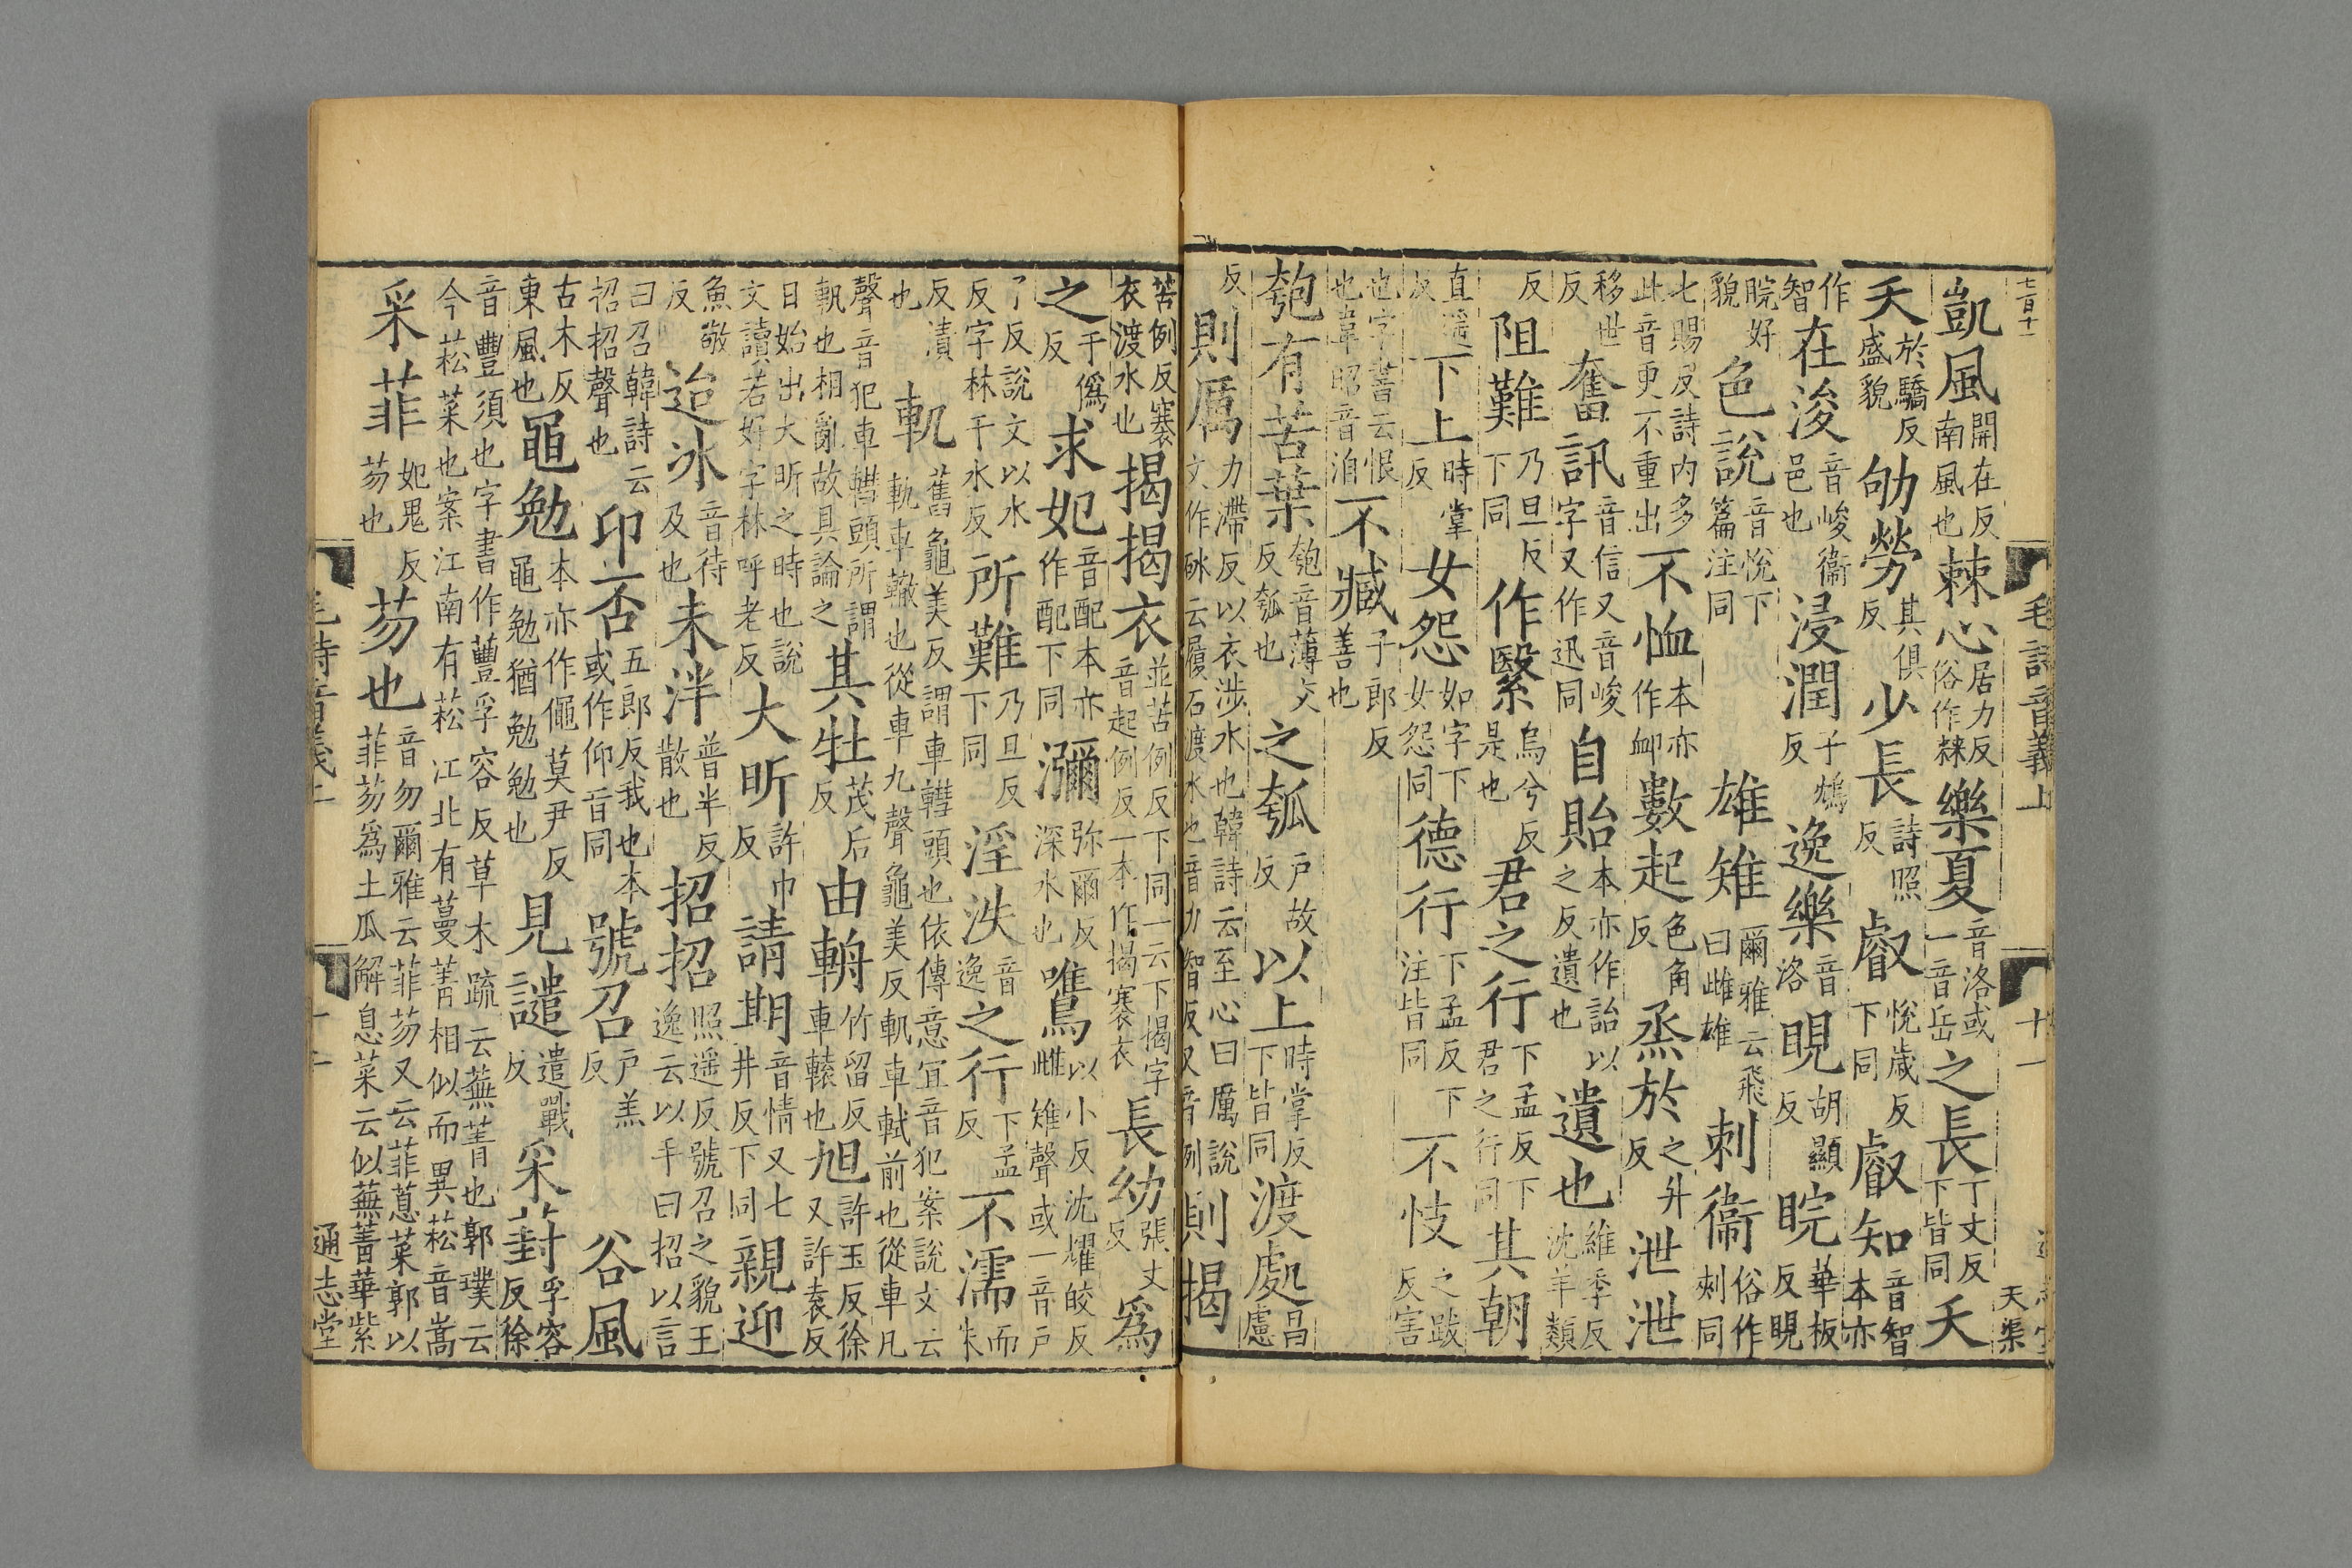 七百十一
毛詩音義上
十一
天渠
凱風開在反南風也棘心居力反俗作𣗥樂夏音洛或一音岳之長丁丈反下皆同夭
夭於驕反盛貌劬勞其俱反少長詩照反叡悅歲反下同叡知音智本亦
作智在浚音峻衞邑也浸潤子鴆反逸樂音洛睍胡顯反睆華板反睍
睆好貌色說音悅下篇注同雄雉爾雅云飛曰雌雄刺衞俗作刾同
七賜反詩內多此音更不重出不恤本亦作卹數起色角反烝於之升反泄泄
移世反奮訊音信又音峻字又作迅同自貽本亦作詒以之反遺也遺也維季反沈羊類
反阻難乃旦反下同作繄烏兮反是也君之行下孟反下君之行同其朝
直遥反下上時掌反女怨如字下女怨同德行下孟反下注皆同不忮之跂反害
也字書云恨也韋昭音洎不臧子郎反善也
匏有苦葉匏音薄交反瓠也之瓠戶故反以上時掌反下皆同渡處昌慮
反則厲力滯反以衣涉水也韓詩云至心曰厲說文作砅云履石渡水也音力智反又音例則揭
苦例反褰衣渡水也揭揭衣並苦例反下同一云下揭字音起例反一本作揭褰衣長幼張丈反爲
之于僞反求妃音配本亦作配下同瀰弥爾反深水也鷕以小反沈耀皎反雌雉聲或一音戶
了反說文以水反字林于水反所難乃旦反下同淫泆音逸之行下孟反不濡而朱
反漬也軌舊龜美反謂車轊頭也依傳意宜音犯案說文云軌車轍也從車九聲龜美反軓車軾前也從車凡
聲音犯車轊頭所謂軓也相亂故具論之其牡茂后反由輈竹留反車轅也旭許玉反徐又許袁反
日始出大昕之時也說文讀若好字林呼老反大昕許巾反請期音情又七井反下同親迎
魚敬反迨冰音待及也未泮普半反散也招招照遥反號召之貌王逸云以手曰招以言
曰召韓詩云招招聲也卬否五郎反我也本或作仰音同號召戶羔反谷風
古木反東風也黽勉本亦作僶莫尹反黽勉猶勉勉也見譴遣戰反采葑孚容反徐
音豐須也字書作蘴孚容反草木疏云蕪菁也郭璞云今菘菜也案江南有菘江北有蔓菁相似而異菘音嵩
采菲妃鬼反芴也芴也音勿爾雅云菲芴又云菲蒠菜郭以菲芴爲土瓜解息菜云似蕪菁華紫
毛詩音義上
通志堂